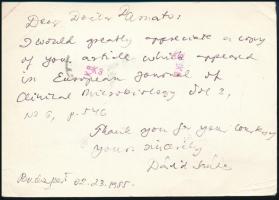 Dear Doctor
I would greatly appreciate a copy
of your article which appeared
in European Journal of
Clinical Microbiology Vol 2,
No 6, p. 546
Thank you for your courtesy
yours sincerely
Dávid
Budapest 02. 23. 1985.